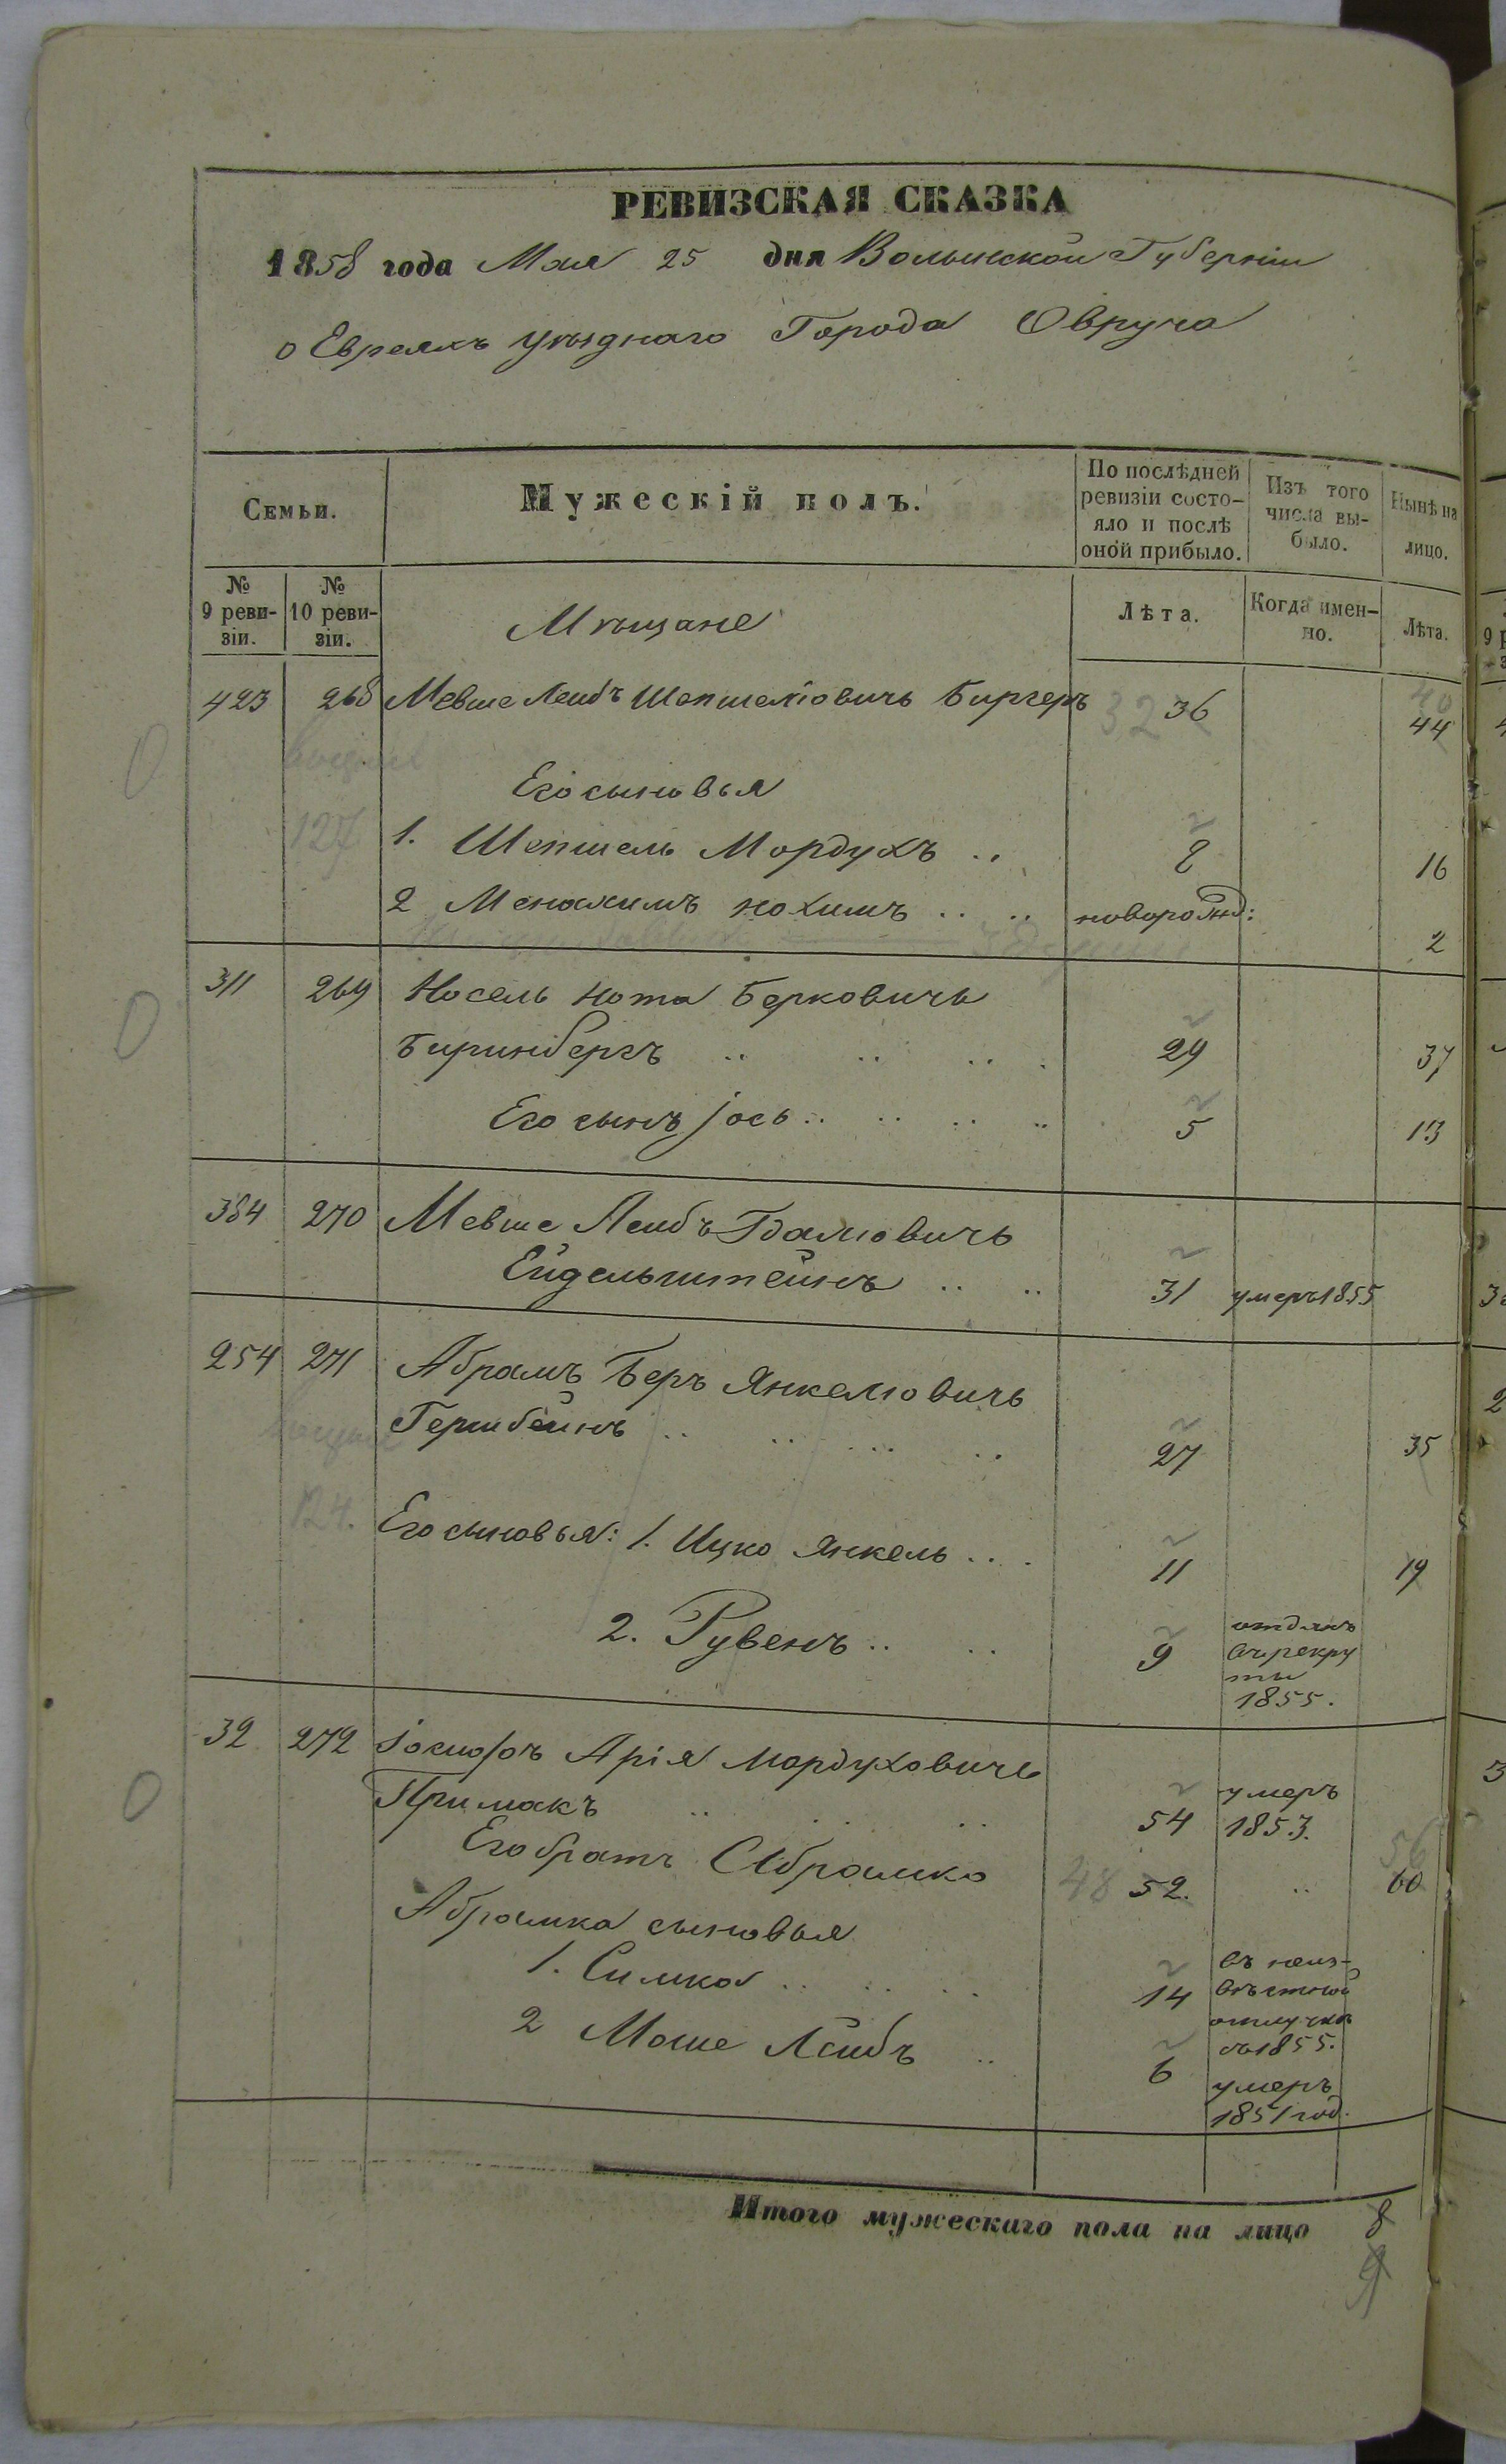 РЕВИЗСКАЯ СКАЗКА
1858 года Мая 25 дня Волынской Губерніи
о Евреяхъ уѣзднаго Города Овруча
Семьи.
Мужескій полъ.
По послѣдней ревизіи состо-
яло и послѣ
оной прибыло.
Изъ того
числа вы-
было.
Нынѣ на
лицо.
№
9 реви-
зіи.
№
10 реви-
зіи.
Мѣщане
Лѣта.
Когда имен-
но.
Лѣта.
423 268 Мевше Лейбъ Шепшеліовичь Биргеръ 32 36 40 44
Его сыновья
127 1. Шепшель Мордухъ .. 8 16
2 Менахимъ Нохимъ .. .. новорожд: 2
311 269 Носель Нота Берковичь
Биринбергъ .. .. .. . 29 37
Его сынъ Јось .. .. .. .. 5 13
384 270 Мевше Лейбъ Гдаліовичь
Ейдельштейнъ .. .. 31 умеръ 1855
254 271 Абрамъ Беръ Янкеліовичь
Герибейнъ .. .. ... .. 27 35
124. Его сыновья: 1. Ицко Янкель ... 11 19
2. Рувенъ .. .. 9 отданъ
въ рекру
ты
1855.
32 272 Іосифъ Арія Мордуховичь
Примакъ .. .. .. 54 умеръ
1853.
Его братъ Абрамко 48 52. .. 56 60
Абрамка сыновья
1. Симха .. .. .. 14 въ неиз-
вѣстной
отлучкѣ
съ 1855.
2 Моше Лейбъ .. 6 умеръ
1851 год.
Итого мужескаго пола на лицо 8
9